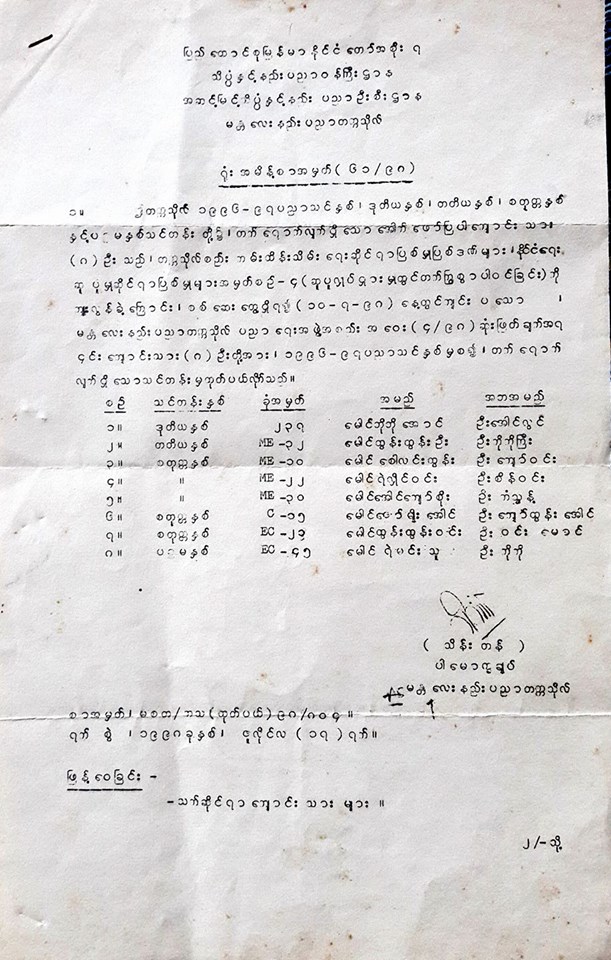 ပြည်ထောင်စုမြန်မာနိုင်ငံတော်အစိုးရ
သိပ္ပံနှင့်နည်းပညာဝန်ကြီးဌာန
အဆင့်မြင့်သိပ္ပံနှင့်နည်းပညာဦးစီးဌာန
မန္တလေးနည်းပညာတက္ကသိုလ်
ရုံးအမိန့်စာအမှတ်(၆၁/၉၈)
၁။ ဤတက္ကသိုလ် ၁၉၉၆-၉၇ပညာသင်နှစ်၊ ဒုတိယနှစ်၊ တတိယနှစ်၊ စတုတ္ထနှစ်
နှင့်ပဉ္စမနှစ်သင်တန်းတို့၌၊ တက်ရောက်လျက်ရှိသောအောက်ဖော်ပြပါကျောင်းသား
(၈)ဦးသည်၊ တက္ကသိုလ်စည်းကမ်းထိန်းသိမ်းရေးဆိုင်ရာပြစ်မှုပြစ်ဒဏ်များ၊ နိုင်ငံရေး
ဆူပူမှုဆိုင်ရာပြစ်မှုများအမှတ်စဉ်-၄(ဆူပူလှုပ်ရှားမှုတွင်တက်ကြွစွာပါဝင်ခြင်း)ကို
ကျူးလွန်ခဲ့ကြောင်း၊ စစ်ဆေးတွေ့ရှိရ၍ (၁၀-၇-၉၈)နေ့တွင်ကျင်းပသော ၊
မန္တလေးနည်းပညာတက္ကသိုလ် ပညာရေးအဖွဲ့အစည်းအဝေး(၄/၉၈)ဆုံးဖြတ်ချက်အရ
၎င်းကျောင်းသား(၈)ဦးတို့အား၊ ၁၉၉၆-၉၇ပညာသင်နှစ်မှစ၍၊ တက်ရောက်
လျက်ရှိသောသင်တန်းမှထုတ်ပယ်လိုက်သည်။
စဉ် သင်တန်းနှစ် ခုံအမှတ် အမည် အဘအမည်
၁။ ဒုတိယနှစ် ၂၃၇ မောင်ဘိုဘိုအောင် ဦးအောင်လွင်
၂။ တတိယနှစ် ME-၃၂ မောင်ထွန်းထွန်းဦး ဦးဘိုကိုကြီး
၃။ စတုတ္ထနှစ် ME-၁၀ မောင်ဇော်လင်းထွန်း ဦးကျော်ဝင်း
၄။ " ME-၂၂ မောင်ရဲလှိုင်ဝင်း ဦးစိန်ဝင်း
၅။ " ME-၃၀ မောင်အောင်ကျော်စိုး ဦး
၆။ စတုတ္ထနှစ် C-၁၅ မောင်ဇော်မျိုးအောင် ဦးကျော်ထွန်းအောင်
၇။ စတုတ္ထနှစ် EC-၂၃ မောင်ထွန်းထွန်းဝင်း ဦးဝင်းမောင်
၈။ ပဉ္စမနှစ် EC-၄၅ မောင်ရဲမင်းသူ ဦးဘိုကို
(သိန်းတန်)
ပါမောက္ခချုပ်
မန္တလေးနည်းပညာတက္ကသိုလ်
စာအမှတ်၊ မစတ/ဘသ(ထုတ်ပယ်)၉၈/၈၀၄။
ရက်စွဲ ၊၁၉၉၈ခုနှစ်၊ ဇူလိုင်လ(၁၇)ရက်။
ဖြန့်ဝေခြင်း -
-သက်ဆိုင်ရာကျောင်းသားများ။
၂/-သို့